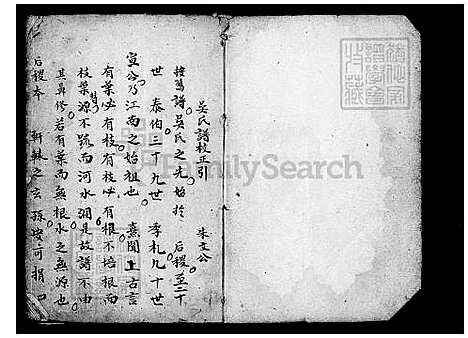 吳氏譜校正引
朱文公
按舊譜吳氏之先始於 后稷至二十
世 泰伯三丁九世 季札九十世
宣公乃江南之始祖也 熹聞上古言
有葉必有枝有枝必有根不培根而
枝葉源不疏而河水涸是故譜不由
其鼻修若有葉而無根水之無源也
后稷本 軒轅之玄孫安可捐
FamilySearch